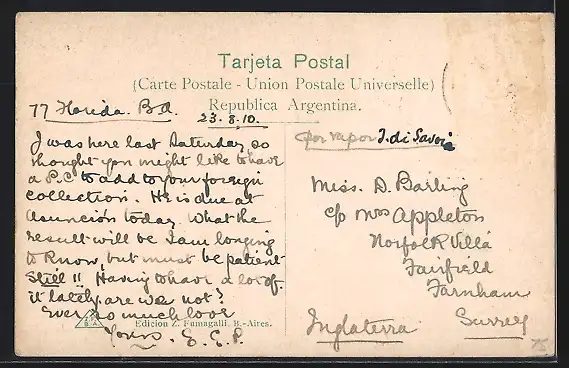 Tarjeta Postal
(Carte Postale - Union Postale Universelle)
Republica Argentina.
77 Florida. B.A.
23.8.10.
I was here last Saturday, so
thought you might like to have
a P.C to add to your foreign
collection. He is due at
Asunción today. What the
result will be I am longing
to know, but must be patient
still !! Having to have a lot of
it lately are we not?
Ever so much love
Yours. E.E.P.
Edicion Z. Fumagalli, B.-Aires.
por vapor T. di Savoia
Miss. D. Barling
c/o Mrs Appleton
Norfolk Villa
Fairfield
Farnham
Surrey
Inglaterra